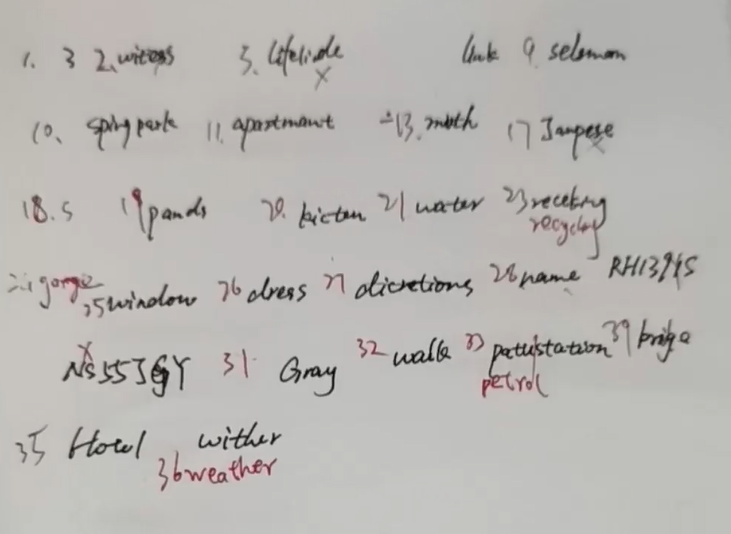 1. 3 2. witess 3. lifelinde link 9. selemon
10. sping park 11. apartmant =13. muth 17 Janpese
18. S 19 pands 20. kicten 21 water 23 receking
recyclay
=4 gorge 25 window 26 dress 27 dicretions 28 name RH1394S
NS55JGY 31. Gray 32 walk 33 patustation 39 brige
petrol
35 Hotel wither
36 weather